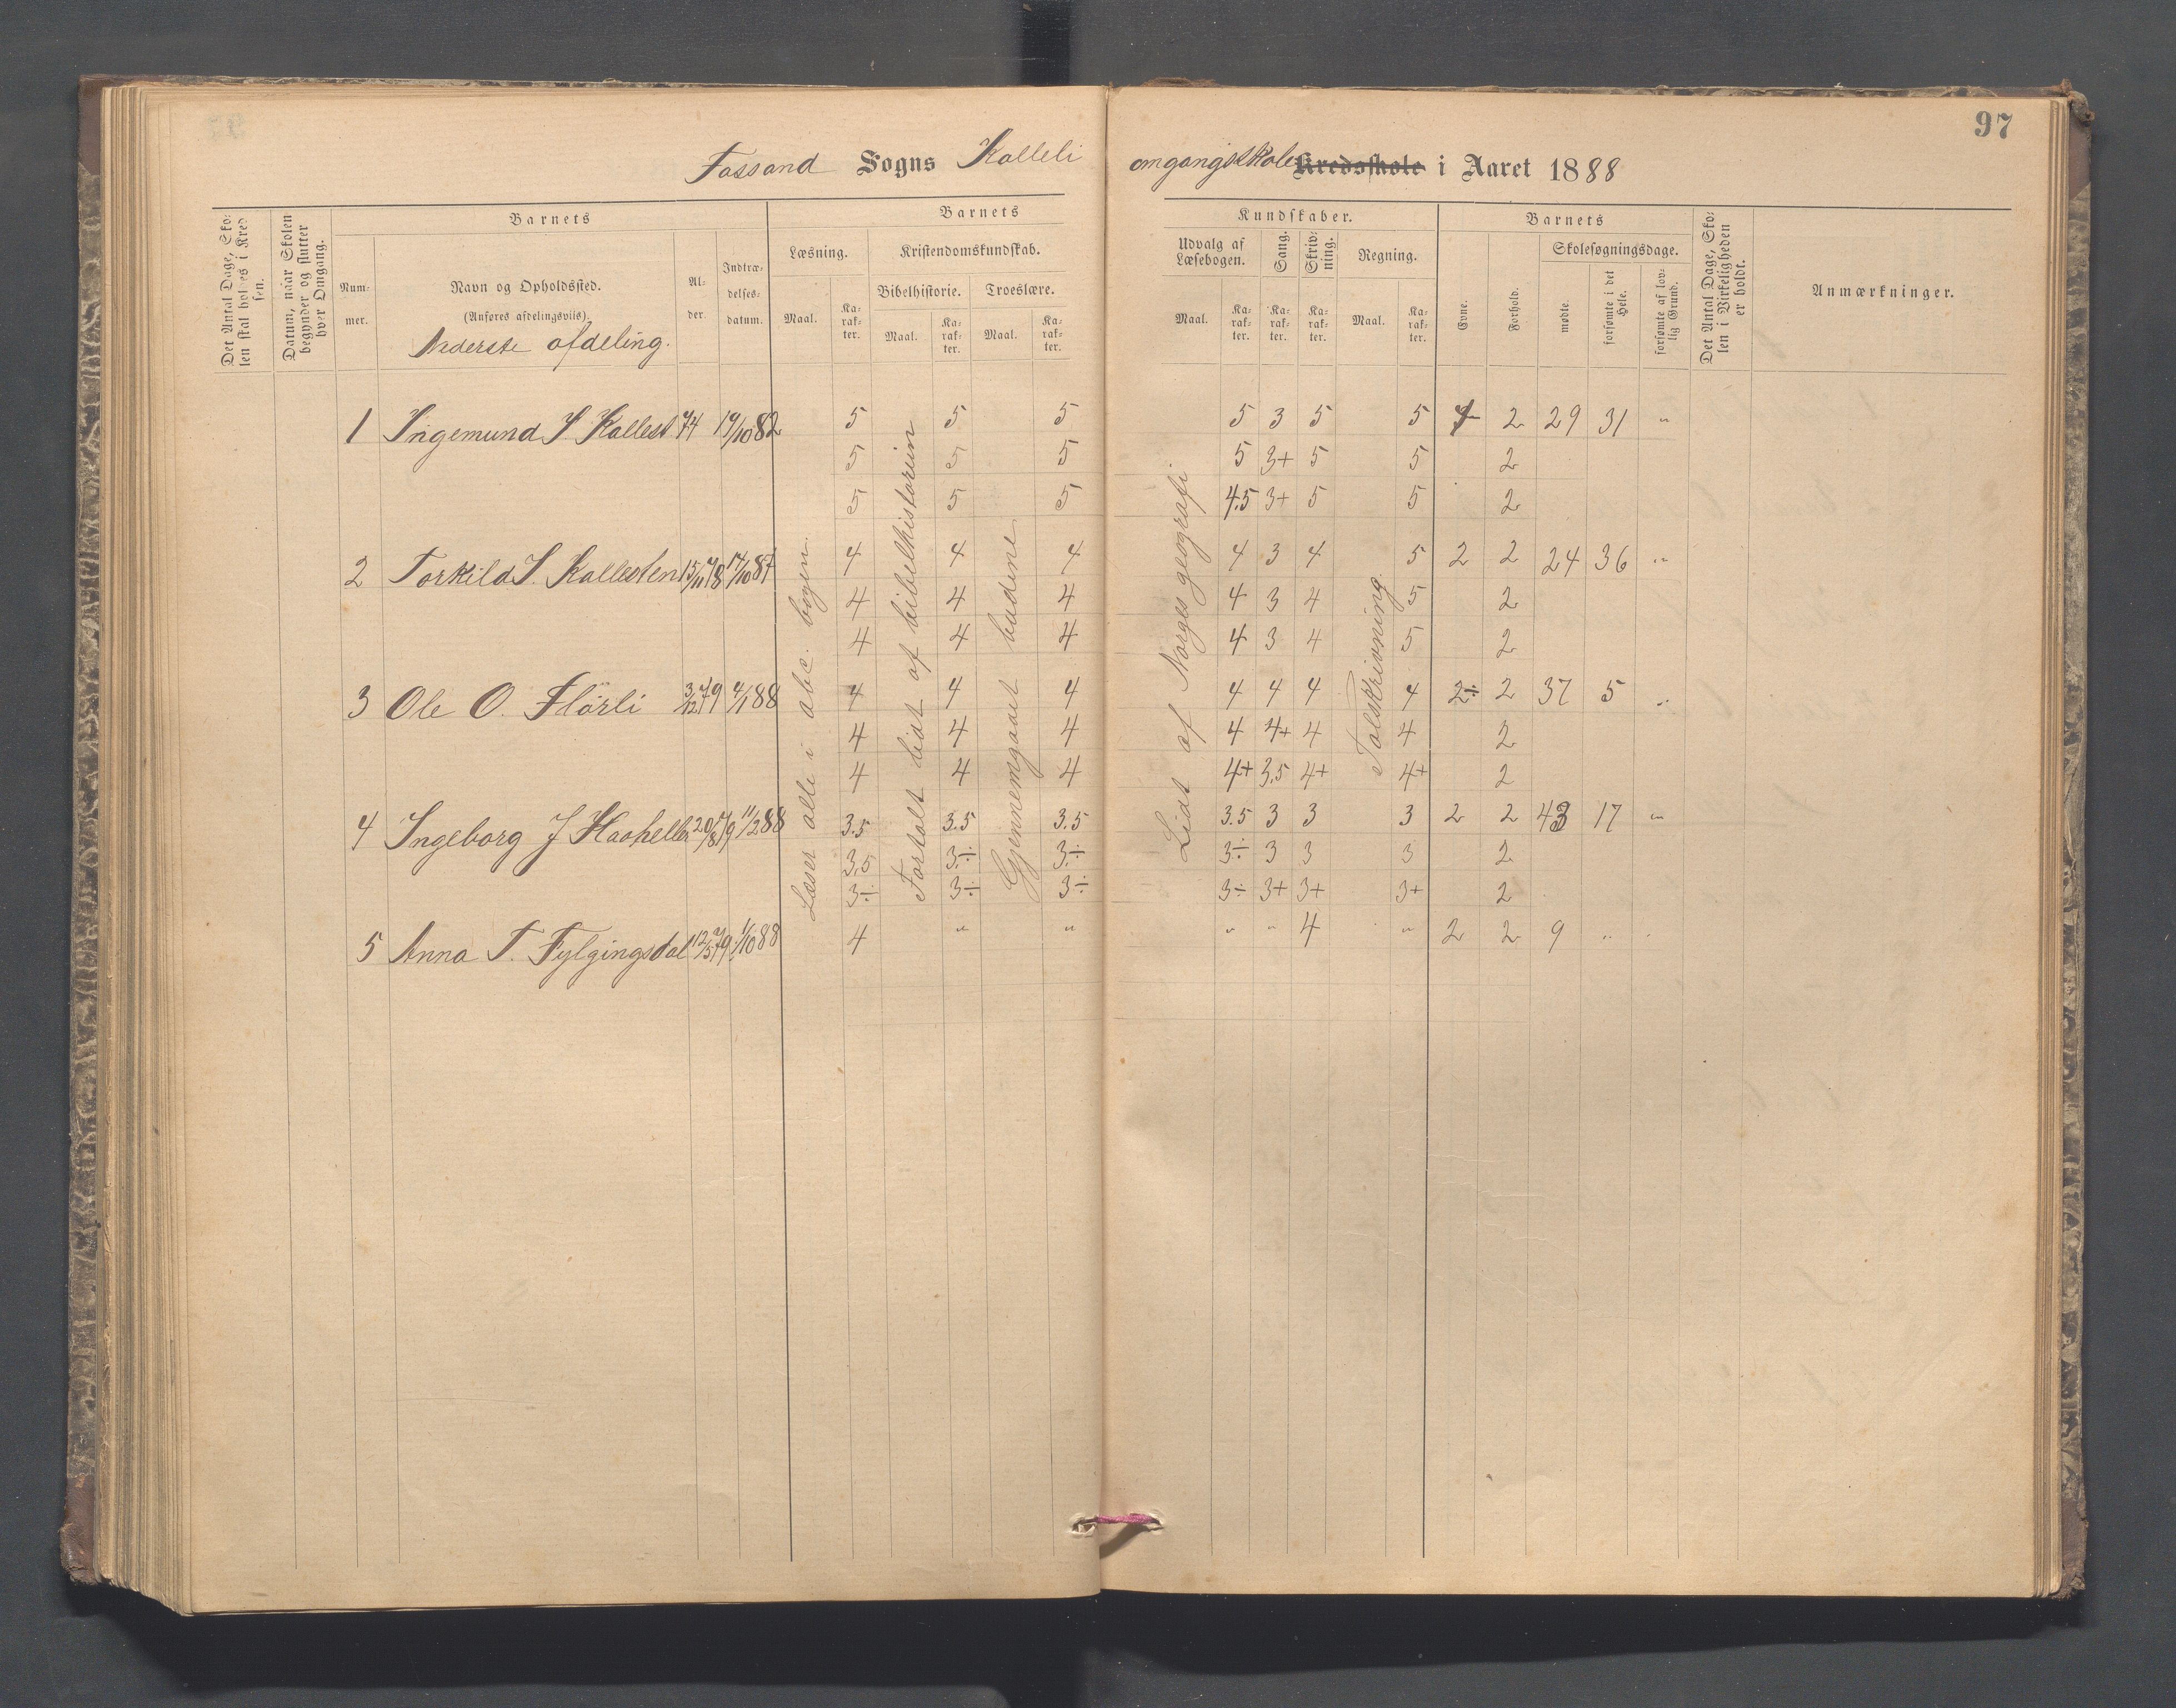 97
Fossand Sogns Kalleli omgangsskole Kredsskole i Aaret 1888
Det Antal Dage, Skolen skal holdes i Kredsen.
Datum, naar Skolen begynder og slutter hver Omgang.
Barnets
Nummer.
Navn og Opholdssted.
(Anføres afdelingsviis).
Nederste afdeling.
Alder.
Indtrædelsesdatum.
Barnets
Læsning.
Maal.
Karakter.
Kristendomskundskab.
Bibelhistorie.
Maal.
Karakter.
Troeslære.
Maal.
Karakter.
Kundskaber.
Udvalg af Læsebogen.
Maal.
Karakter.
Sang.
Karakter.
Skrivning.
Karakter.
Regning.
Maal.
Karakter.
Barnets
Evne.
Forhold.
Skolesøgningsdage.
mødte.
forsømte i det Hele.
forsømte af lovlig Grund.
Det Antal Dage, Skolen i Virkeligheden er holdt.
Anmærkninger.
Læser alle i abc. bogen.
Fortalt lidt af bibelhistorien
Gjennemgaaet budene
Lidt af Norges geografi
Talskrivning.
1 Ingemund S. Kallest 74 19/10 82 5 5 5 5 3 5 5 4 2 29 31 "
5 5 5 5 3+ 5 5 2
5 5 5 4.5 3+ 5 5 2
2 Torkild S. Kallesten 15/11 78 17/10 87 4 4 4 4 3 4 5 2 2 24 36 "
4 4 4 4 3 4 5 2
4 4 4 4 3 4 5 2
3 Ole O. Flörli 3/12 79 4/1 88 4 4 4 4 4 4 4 2÷ 2 37 5 "
4 4 4 4 4+ 4 4 2
4 4 4 4+ 3.5 4+ 4+ 2
4 Ingeborg J Haaheller 20/8 79 11/2 88 3.5 3.5 3.5 3.5 3 3 3 2 2 43 17 "
3.5 3÷ 3÷ 3÷ 3 3 3 2
3÷ 3÷ 3÷ 3÷ 3+ 3+ 3+ 2
5 Anna T. Fylgingsdal 12/5 79 1/10 88 4 " " " " 4 " 2 2 9 "